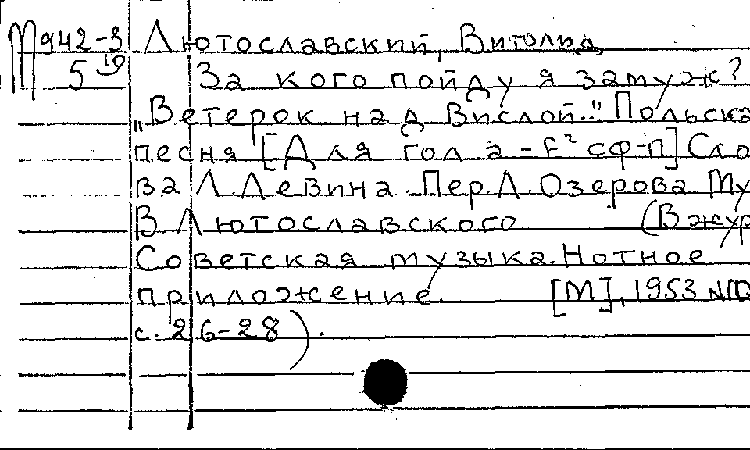 М 942-3 Лютославский, Витольд
5 10 За кого пойду я замуж?
"Ветерок над Вислой." Польска
песня [Для голоса - f² сф-п] Сло
ва Л. Левина Пер. А. Озерова Му
В Лютославского (В жур
Советская музыка. Нотное
приложение. [М], 1953 №10
с. 26-28).